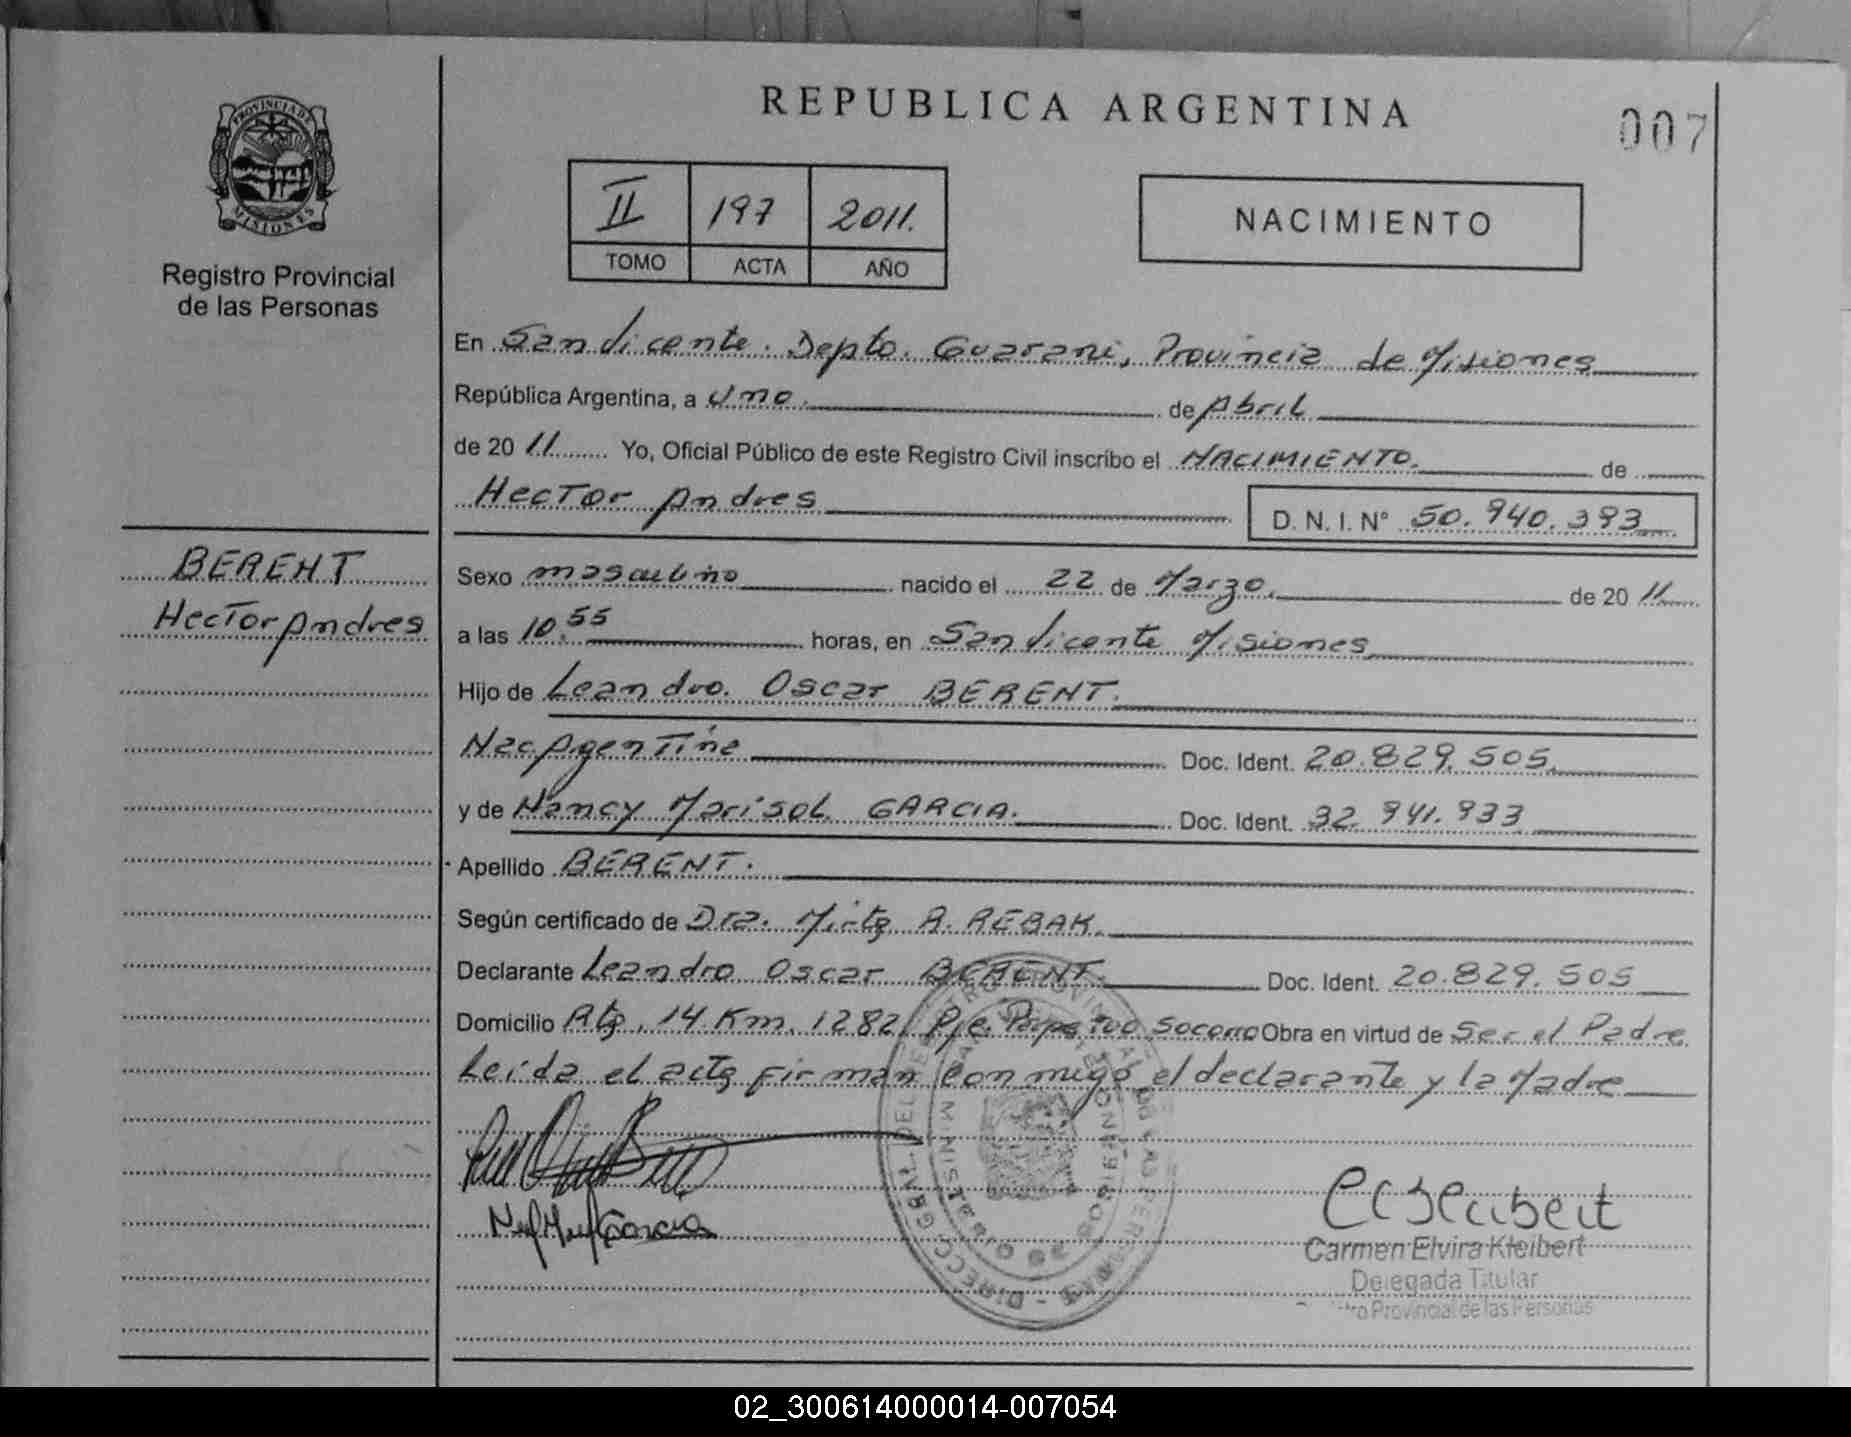 REPUBLICA ARGENTINA
007
PROVINCIA DE MISIONES
Registro Provincial
de las Personas
II 197 2011.
TOMO ACTA AÑO
NACIMIENTO
En San Vicente. Depto. Guarani, Provincia de Misiones
República Argentina, a uno. de Abril
de 2011 Yo, Oficial Público de este Registro Civil inscribo el NACIMIENTO. de
Hector Andres D. N. I. N° 50.940.393
BERENT
Hector Andres
Sexo masculino nacido el 22 de Marzo. de 2011
a las 10.55 horas, en San Vicente Misiones
Hijo de Leandro. Oscar BERENT.
Nac. Argentina Doc. Ident. 20.829.505.
y de Nancy Marisol GARCIA. Doc. Ident. 32.941.933
Apellido BERENT.
Según certificado de Dra. Mirta R. REBAK.
Declarante Leandro Oscar BERENT. Doc. Ident. 20.829.505
Domicilio Rta. 14 Km. 1282 Pje. Socorro Obra en virtud de Ser el Padre
Leida el acta firman conmigo el declarante y la Madre
Garcia
Carmen Elvira Kleibert
Delegada Titular
Provincial de las Personas
02_300614000014-007054